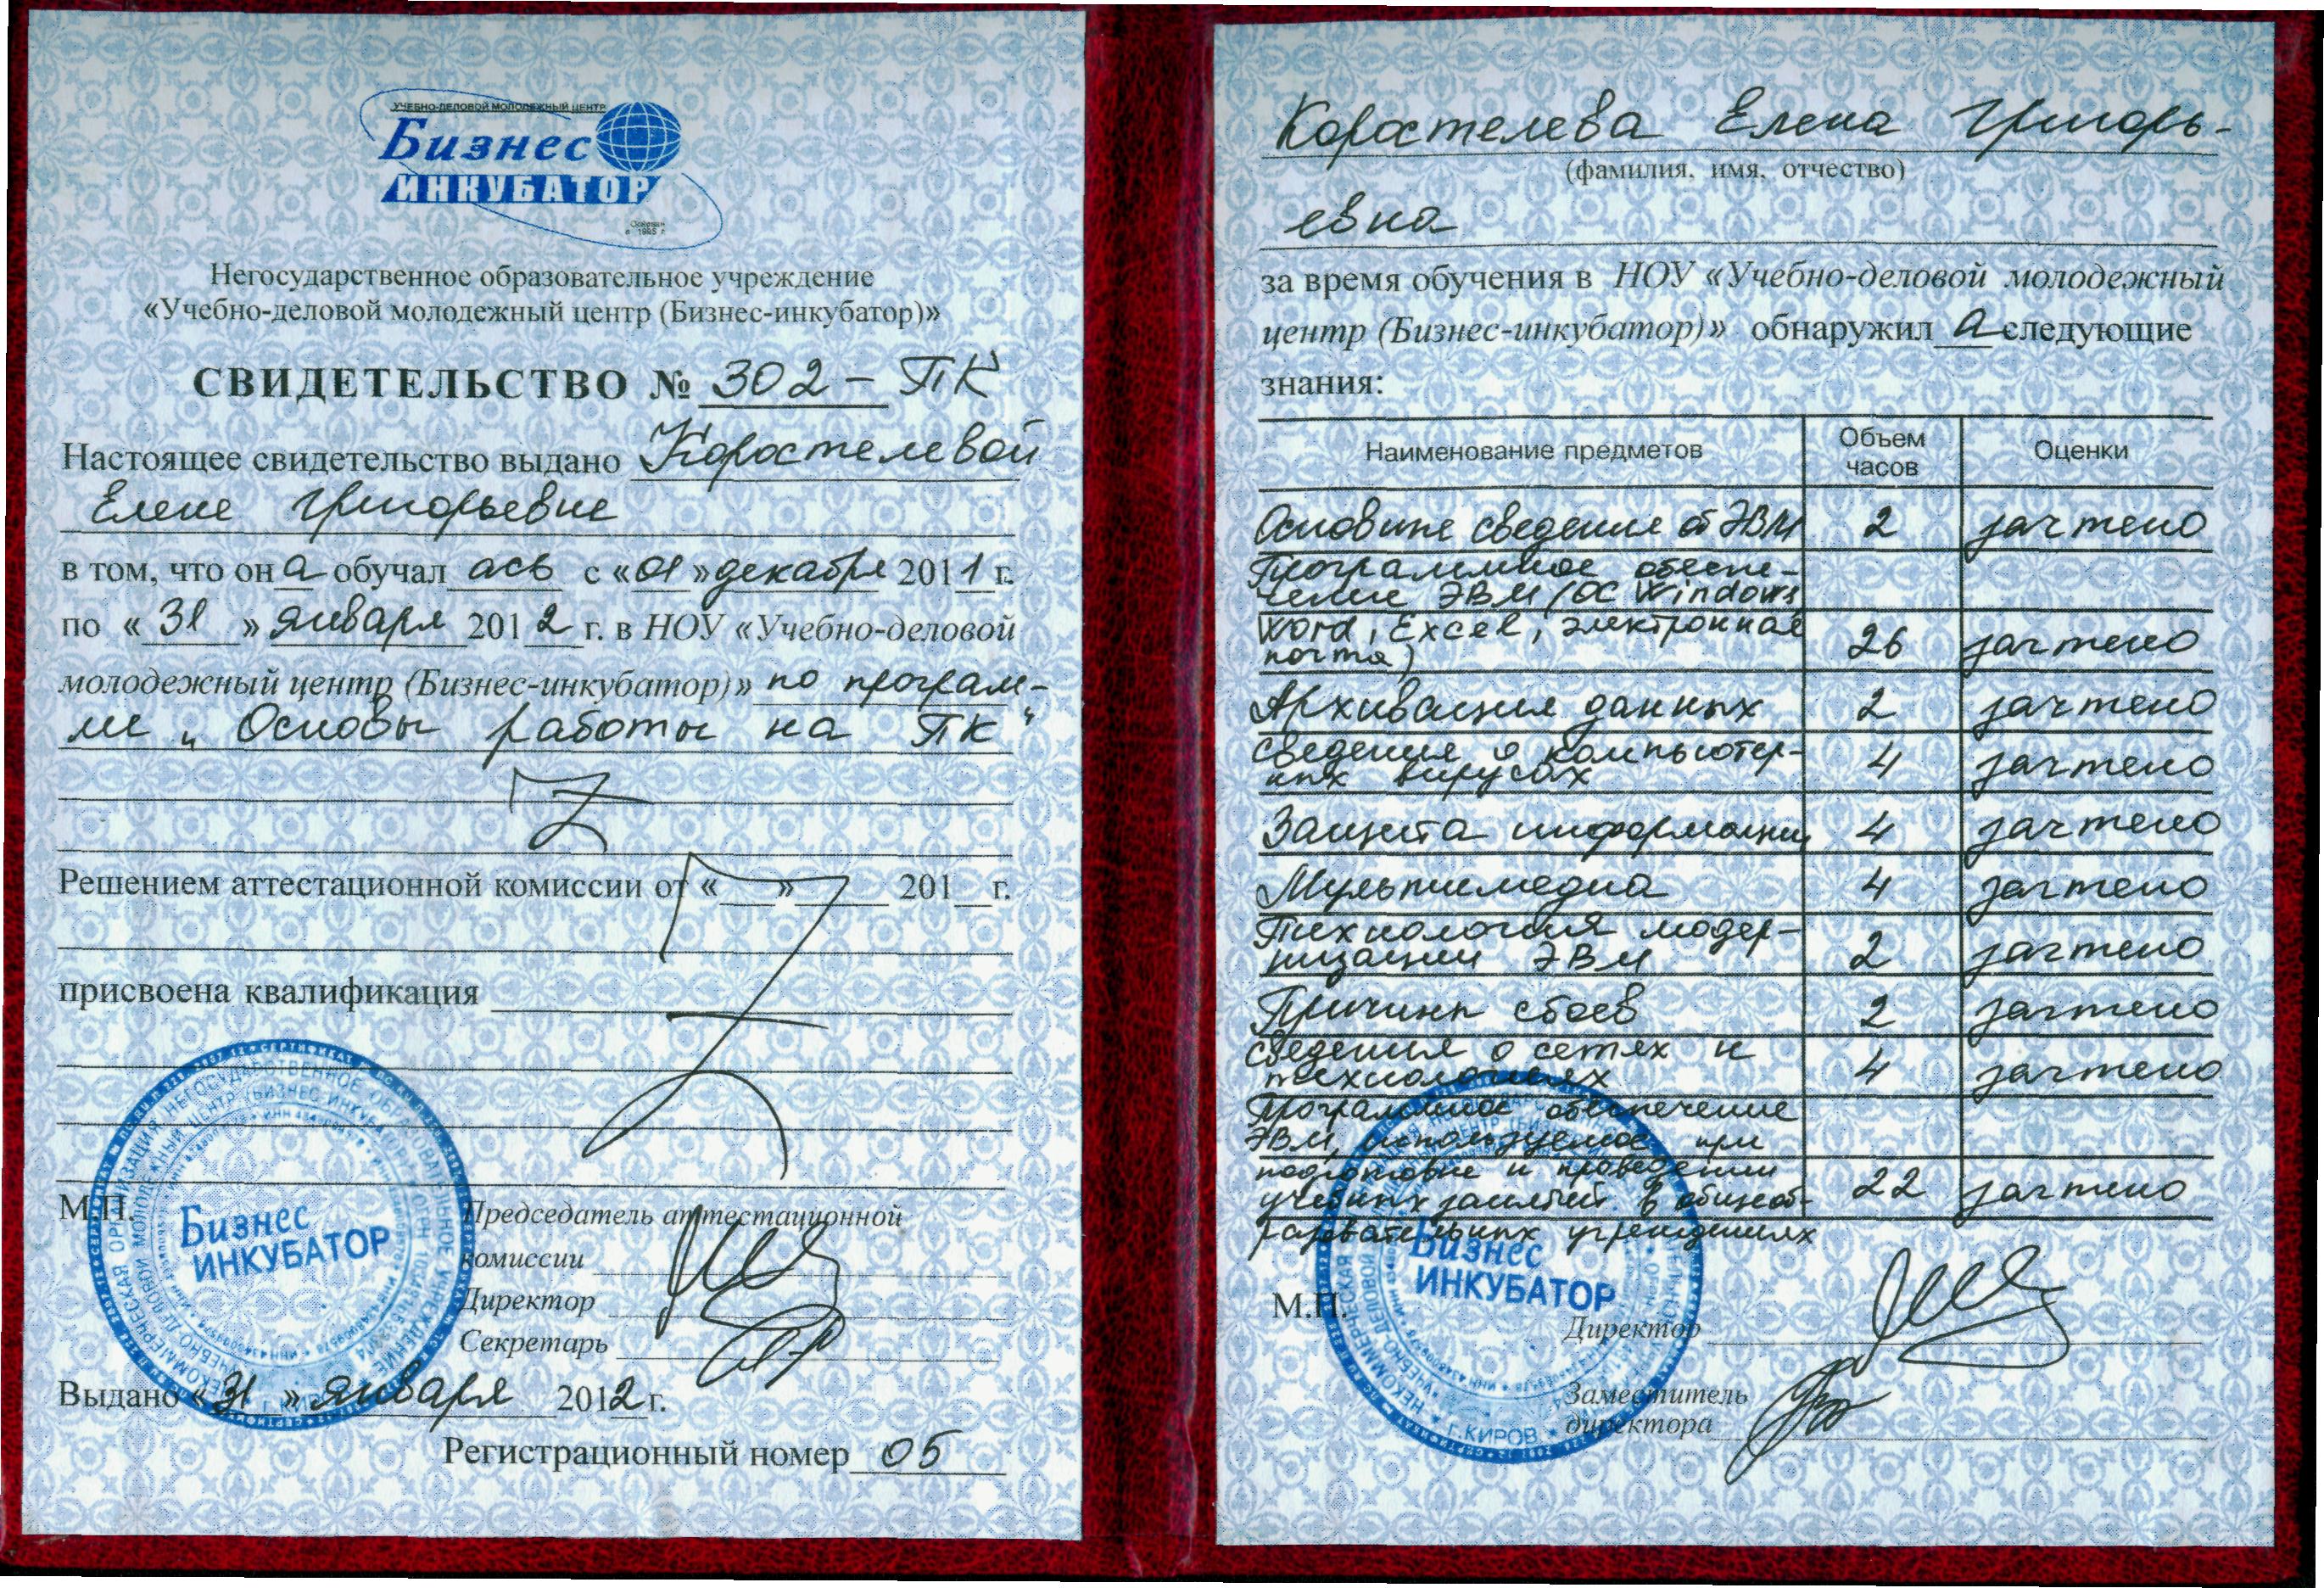 УЧЕБНО-ДЕЛОВОЙ МОЛОДЕЖНЫЙ ЦЕНТР
Бизнес
ИНКУБАТОР
Основан
в 1995 г.
Негосударственное образовательное учреждение
«Учебно-деловой молодежный центр (Бизнес-инкубатор)»
СВИДЕТЕЛЬСТВО № 302-ПК
Настоящее свидетельство выдано Коростелевой
Елене Григорьевне
в том, что она обучалась с «01» декабря 2011 г.
по «31» января 2012 г. в НОУ «Учебно-деловой
молодежный центр (Бизнес-инкубатор)» по програм-
ме „Основы работы на ПК"
Решением аттестационной комиссии от « » 201 г.
присвоена квалификация
М.П.
Председатель аттестационной
комиссии
Директор
Секретарь
Бизнес
ИНКУБАТОР
Выдано «31» января 2012 г.
Регистрационный номер 05
Коростелева Елена Григорь-
(фамилия, имя, отчество)
евна
за время обучения в НОУ «Учебно-деловой молодежный
центр (Бизнес-инкубатор)» обнаружила следующие
знания:
Наименование предметов Объем часов Оценки
Основные сведения об ЭВМ 2 зачтено
Программное обеспе-
чение ЭВМ (ОС Windows
Word, Excel, электронная
почта) 26 зачтено
Архивация данных 2 зачтено
Сведения о компьютер-
ных вирусах 4 зачтено
Защита информации 4 зачтено
Мультимедиа 4 зачтено
Технология модер-
низации ЭВМ 2 зачтено
Причины сбоев 2 зачтено
Сведения о сетях и
технологиях 4 зачтено
Программное обеспечение
ЭВМ, используемое при
подготовке и проведении
учебных занятий в общеоб- 22 зачтено
разовательных учреждениях
Бизнес
ИНКУБАТОР
г.КИРОВ
М.П.
Директор
Заместитель
директора